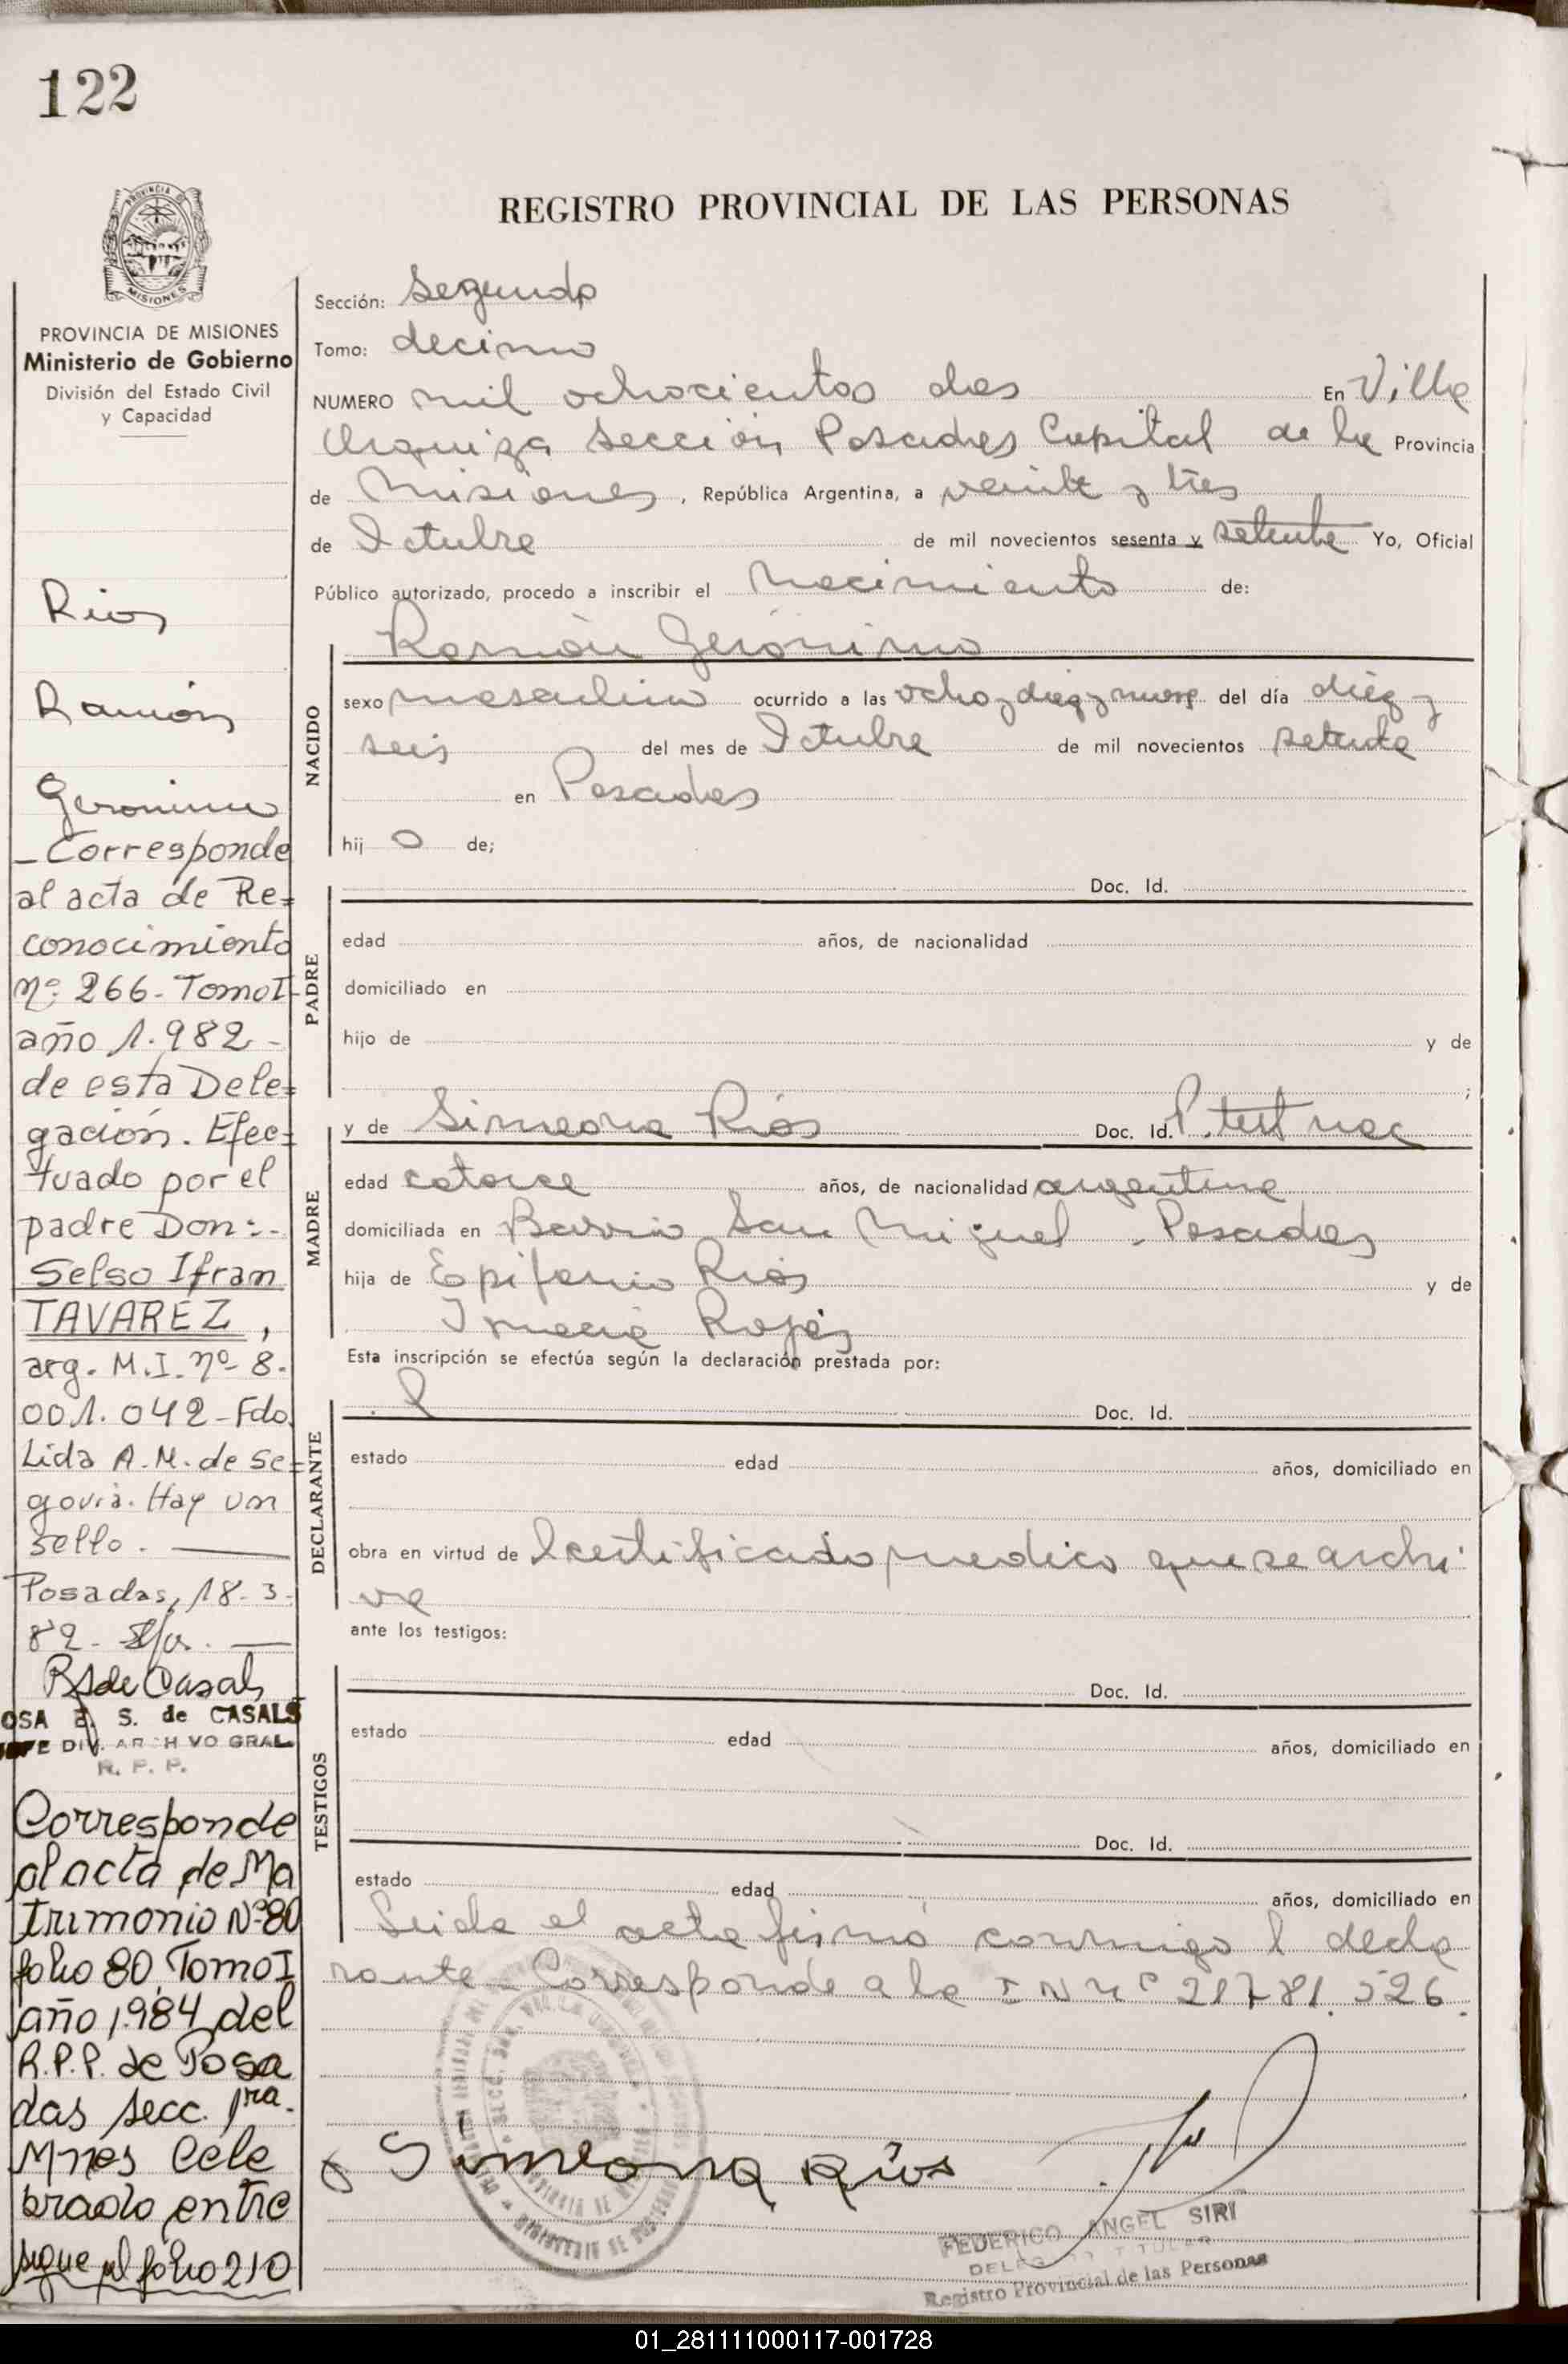 122
PROVINCIA
MISIONES
PROVINCIA DE MISIONES
Ministerio de Gobierno
División del Estado Civil
y Capacidad
REGISTRO PROVINCIAL DE LAS PERSONAS
Sección: Segundo
Tomo: decimo
NUMERO mil ochocientos dos En Villa
Urquiza Sección Posadas Capital de la Provincia
de Misiones, República Argentina, a veinte y tres
de Octubre de mil novecientos sesenta y setenta Yo, Oficial
Público autorizado, procedo a inscribir el Nacimiento de:
NACIDO
Ramón Gerónimo
sexo masculino ocurrido a las ocho y diez y nueve del día diez y
seis del mes de Octubre de mil novecientos setenta
en Posadas
hij o de;
PADRE
Doc. Id.
edad años, de nacionalidad
domiciliado en
hijo de y de
;
MADRE
y de Simeona Ríos Doc. Id. P. test nac
edad catorce años, de nacionalidad argentina
domiciliada en Barrio San Miguel - Posadas
hija de Epifanio Ríos y de
Rojas
Esta inscripción se efectúa según la declaración prestada por:
DECLARANTE
Doc. Id.
estado edad años, domiciliado en
obra en virtud de l certificado medico que se archi
va
ante los testigos:
TESTIGOS
Doc. Id.
estado edad años, domiciliado en
Doc. Id.
estado edad años, domiciliado en
Leida el acta firmó conmigo l decla
rante - Corresponde a la I N Nº 21781.526.
Simeona Ríos
FEDERICO ANGEL SIRI
DELEGADO TITULAR
Registro Provincial de las Personas
Rios
Ramón
Geronimo
- Corresponde
al acta de Re=
conocimiento
nº 266 - Tomo I
año 1.982 -
de esta Dele=
gación. Efec=
tuado por el
padre Don:-
Selso Ifran
TAVAREZ,
arg. M.I. nº 8.
001.042 - Fdo.
Lida A.M. de Se=
govia. Hay un
sello.
Posadas, 18-3-
82-
RSde Casals
OSA S. de CASALS
JEFE DIV. ARCHIVO GRAL.
R. P. P.
Corresponde
al acta de Ma
trimonio Nº 80
folio 80, Tomo I
año 1.984 del
R.P.P. de Posa
das secc. 1ra.
Mnes Cele
brado entre
sigue al folio 210
01_281111000117-001728